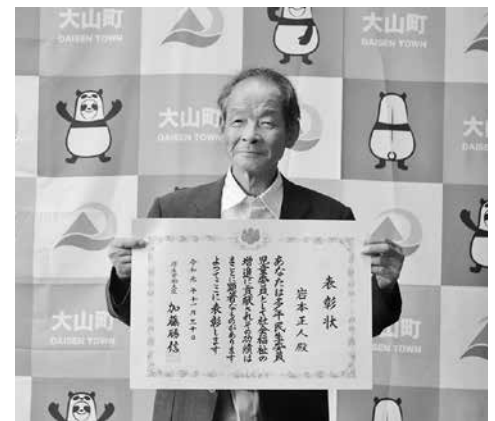 大山町
DAISEN TOWN
大山町
DAISEN TOWN
大山町
DAISEN TOWN
大山町
大山町
表彰状
岩本正人殿
あなたは多年民生委員
児童委員として社会福祉の
増進に貢献されその功績は
まことに顕著なものがあります
よってここに表彰します
令和元年十一月三十日
厚生労働大臣
加藤勝信